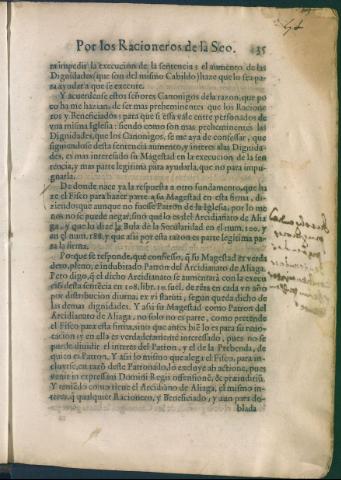 Por los Racioneros de la Seo. 35
ra impedir la execucion de la sentencia: el aumento de las
Dignidades, que son del mismo Cabildo, haze que lo sea pa-
ra ayudar a que se execute.
Y acuerdense estos señores Canonigos de la razon, que po
co ha me hazian, de ser mas preheminentes que los Racione
ros y Beneficiados: para que si essa vale entre personados de
vna misma Iglesia: siendo como son mas preheminentes las
Dignidades, que los Canonigos, se me aya de confessar, que
siguiendose desta sentencia aumento, y interes a las Dignida-
des, es mas interesado su Magestad en la execucion de la sen
tencia, y mas parte legitima para ayudarla, que no para impu-
gnarla.
De donde nace ya la respuesta a otro fundamento, que ha
ze el Fisco para hazer parte a su Magestad en esta firma, di-
ziendo que aunque no fuesse Patron de la Iglesia, por lo me
nos no se puede negar, sino que lo es del Arcidianato de Alia
ga, y que lo dize la Bula de la Secularidad en el num. 100. y
en el num. 188. y que assi por esta razon es parte legitima pa-
ra la firma.
Porque se responde, que confiesso, q̃ su Magestad es verda
dero, pleno, e indubitado Patron del Arcidianato de Aliaga.
Pero digo, q̃ el dicho Arcidianato se aumentarà con la execu
ciõ desta senẽcia en 108. libr. 10. suel. de rẽta en cada vn año
por distribucion diurna, ex vi statuti, segun queda dicho de
las demas dignidades. Y assi su Magestad como Patron del
Arcidianato de Aliaga, no solo no es parte, como pretende
el Fisco para esta firma, sino que antes biẽ lo es para su reuo-
cacion: y en ella es verdaderamente interessado, pues no se
puede diuidir el interes del Patron, y el de la Prebenda, de
quien es Patron. Y assi lo mismo que alega el Fisco, para in-
cluyrse, en razõ deste Patronado, lo excluye ab actione, pues
venit in expressam Domini Regis offensionẽ, & præiudiciũ.
Y teniẽdo como tiene el Arcidiano de Aliaga, el mismo in-
teres, q̃ qualquier Racionero, y Beneficiado, y aun para do-
blada